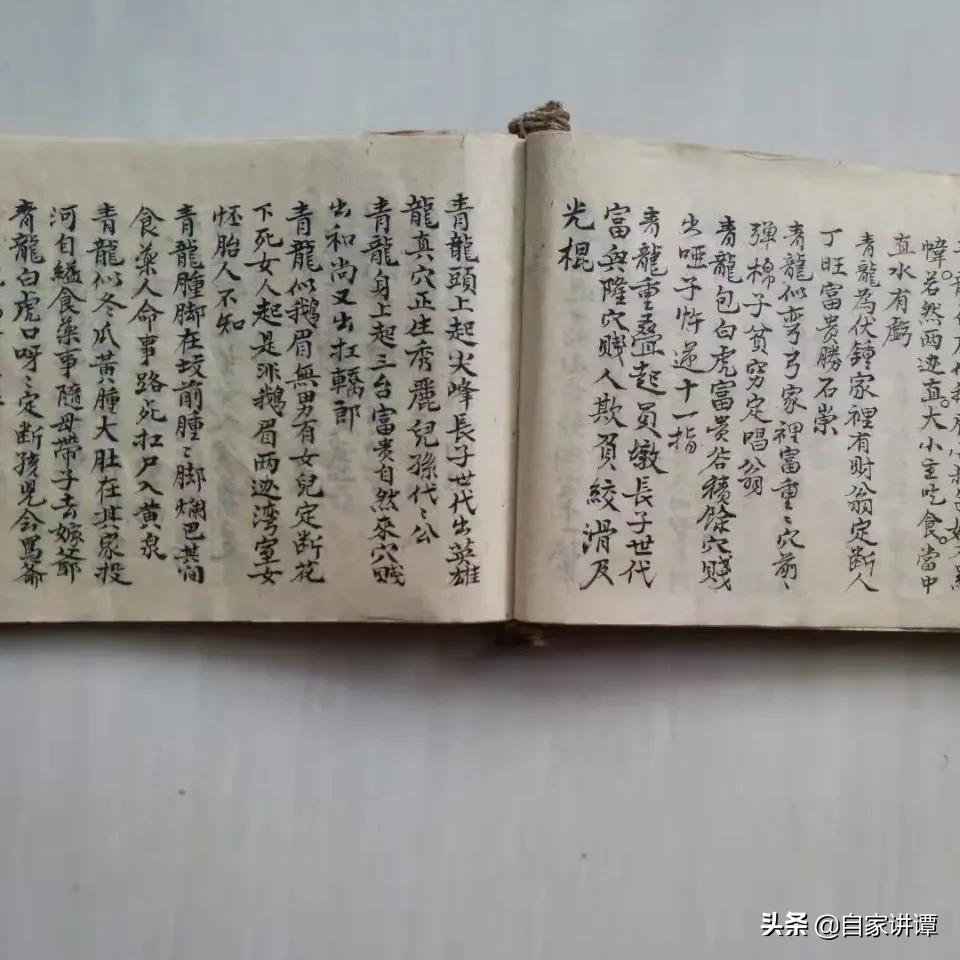 幃。若然兩边直。大小主吃食。當中
直水有虧
青龍為伏鍾家裡有财翁定断人
丁旺富貴勝石崇
青龍似弯弓家裡富重〻穴前〻
弹棉子貧穷定唱翁
青龍包白虎富贵谷積餘穴賤
出啞子忤逆十一指
青龍重叠起員墩長子世代
富與隆穴賤人欺負絞滑及
光棍
青龍頭上起尖峰長子世代出英雄
龍真穴正生秀麗兒孫代〻公
青龍身上起三台富贵自然來穴賤
出和尚又出扛轎郎
青龍似鵝眉無男有女兒定断花
下死女人起是非鵝眉两边湾室女
怀胎人不知
青龍腫脚在坟前腫〻脚爛巴其间
食藥人命事路死扛尸入黄泉
青龍似冬瓜黄腫大肚在其家投
河自縊食藥事隨母帶子去嫁爺
青龍白虎口呀〻定断孩兒会罵爺
头条 @自家讲谭